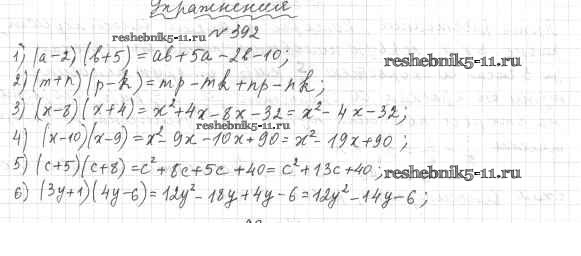 Упражнения
№ 392
reshebnik5-11.ru
1) (a-2)(b+5) = ab+5a-2b-10;
reshebnik5-11.ru
2) (m+n)(p-k) = mp-mk+np-nk;
3) (x-8)(x+4) = x²+4x-8x-32 = x²-4x-32;
reshebnik5-11.ru
4) (x-10)(x-9) = x²-9x-10x+90 = x²-19x+90;
5) (c+5)(c+8) = c²+8c+5c+40 = c²+13c+40;
reshebnik5-11.ru
6) (3y+1)(4y-6) = 12y²-18y+4y-6 = 12y²-14y-6;